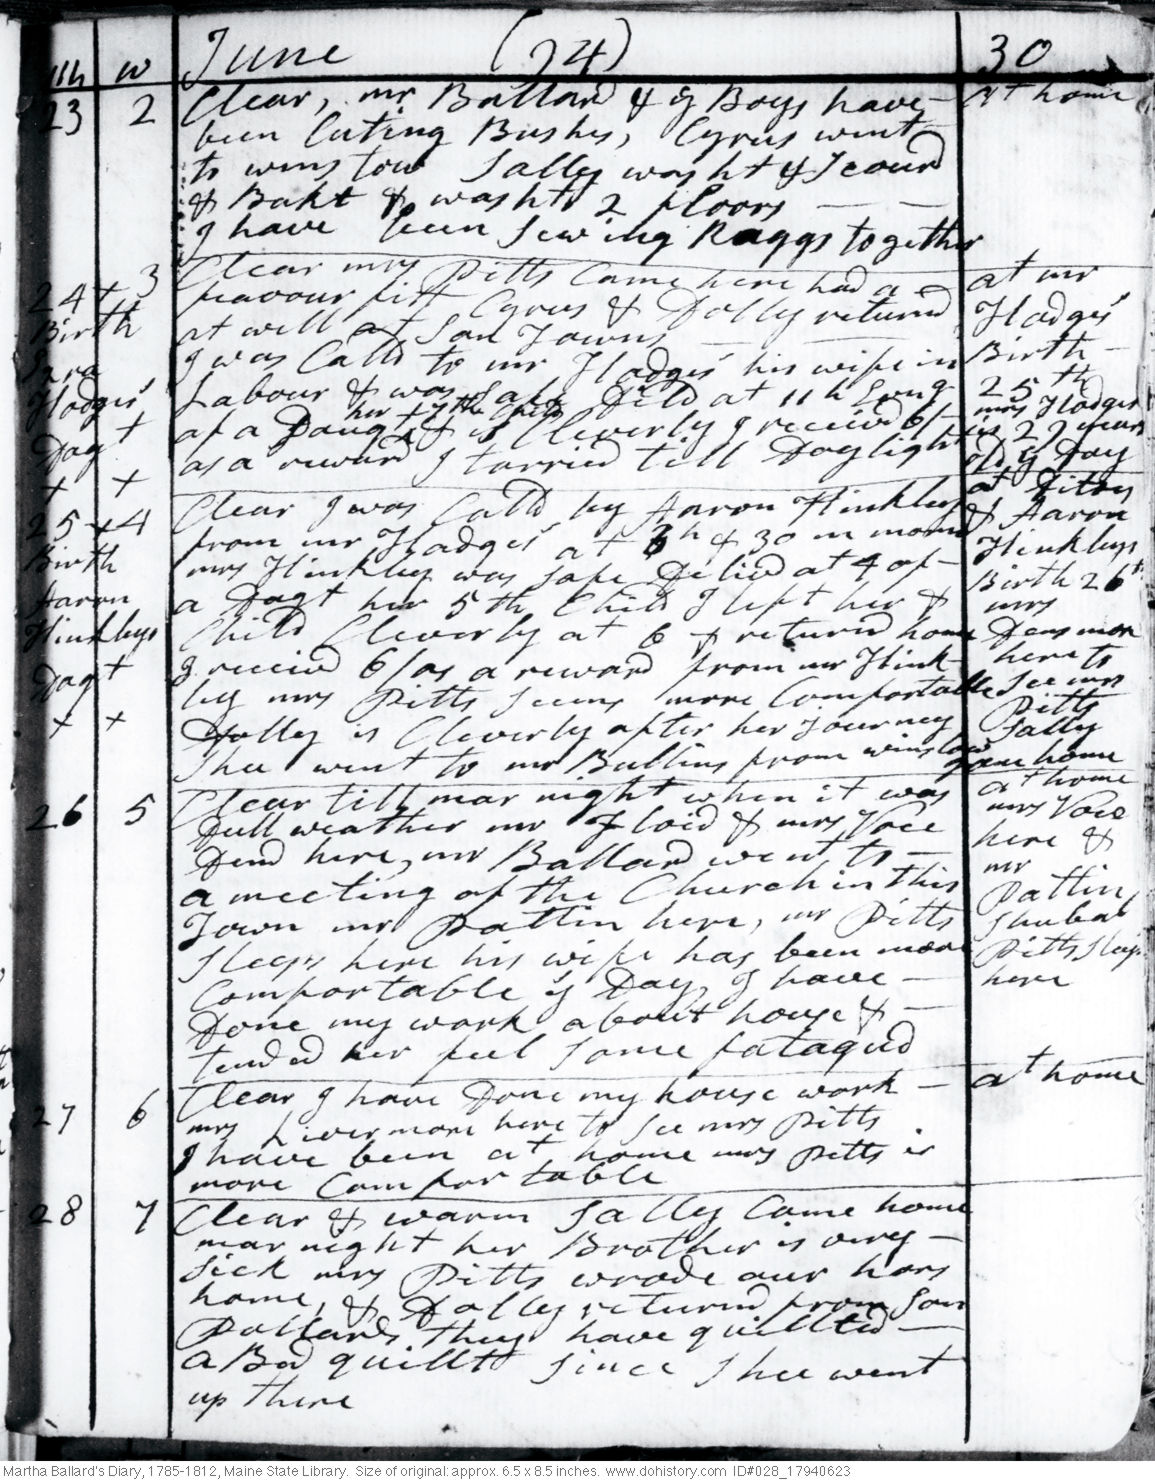 June (24) 30
mh w
23 2 Clear, mr Ballard & ye Boys have at home
been Cuting Bushes, Cyrus went
to winslow Sally washt & Scourd
& Bakt & washt 2 floors
I have been Sewing Raggs together
24 + 3 Clear mrs Pitts Came here had a
feavour fitt Cyrus & Dolly returnd
at well at Son Towns
I was Calld to mr Hodges his wife in
Labour & was Safe Deld at 11 h Evng
her 7th Child
of a Daugt & is Cleverly I receivd 6/
as a reward I tarried till Daylight
Birth
Hodges'
Dagt
+ +
at mr
Hodges'
Birth
25th
mrs Hodges
is 27 years
old ys Day
25 + 4 Clear I was Calld by Aaron Hinkley
from mr Hodges' at 3 h & 30 m morn
mrs Hinkley was Safe Delivd at 4 of
a Dagt her 5th Child I left her &
Child Cleverly at 6 & returnd home
I receivd 6/ as a reward from mr Hink-
ley mrs Pitts Seems more Comfortable
Dolly is Cleverly after her Journey
Shee went to mr Bullins from winslow
Birth
Aaron
Hinkleys
Dagt
+ +
at Ditoy
& Aaron
Hinkleys
Birth 26th
mrs
Densmore
here to
See mrs
Pitts
Sally
gone home
26 5 Clear till near night when it was
Dull weather mr Floid & mrs Voce
Dind here, mr Ballard went to
a meeting of the Church in this
Town mr Pattin here, mr Pitts
Sleeps here his wife has been more
Comfortable ys Day, I have
Done my work about house &
tended her feel Some fatagud
at home
mrs Voce
here &
mr
Pattin,
Shubal
Pitts Sleeps
here
27 6 Clear I have Done my house work at home
mrs Livermore here to See mrs Pitts
I have been at home mrs Pitts is
more Comfortable
28 7 Clear & warm Sally Came home
near night her Brother is very
Sick mrs Pitts wrode our hors
home, & Dolly returnd from Son
Pollards they have quilltd
a Bed quillt Since Shee went
up there
Martha Ballard's Diary, 1785-1812, Maine State Library. Size of original: approx. 6.5 x 8.5 inches. www.dohistory.com ID#028_17940623